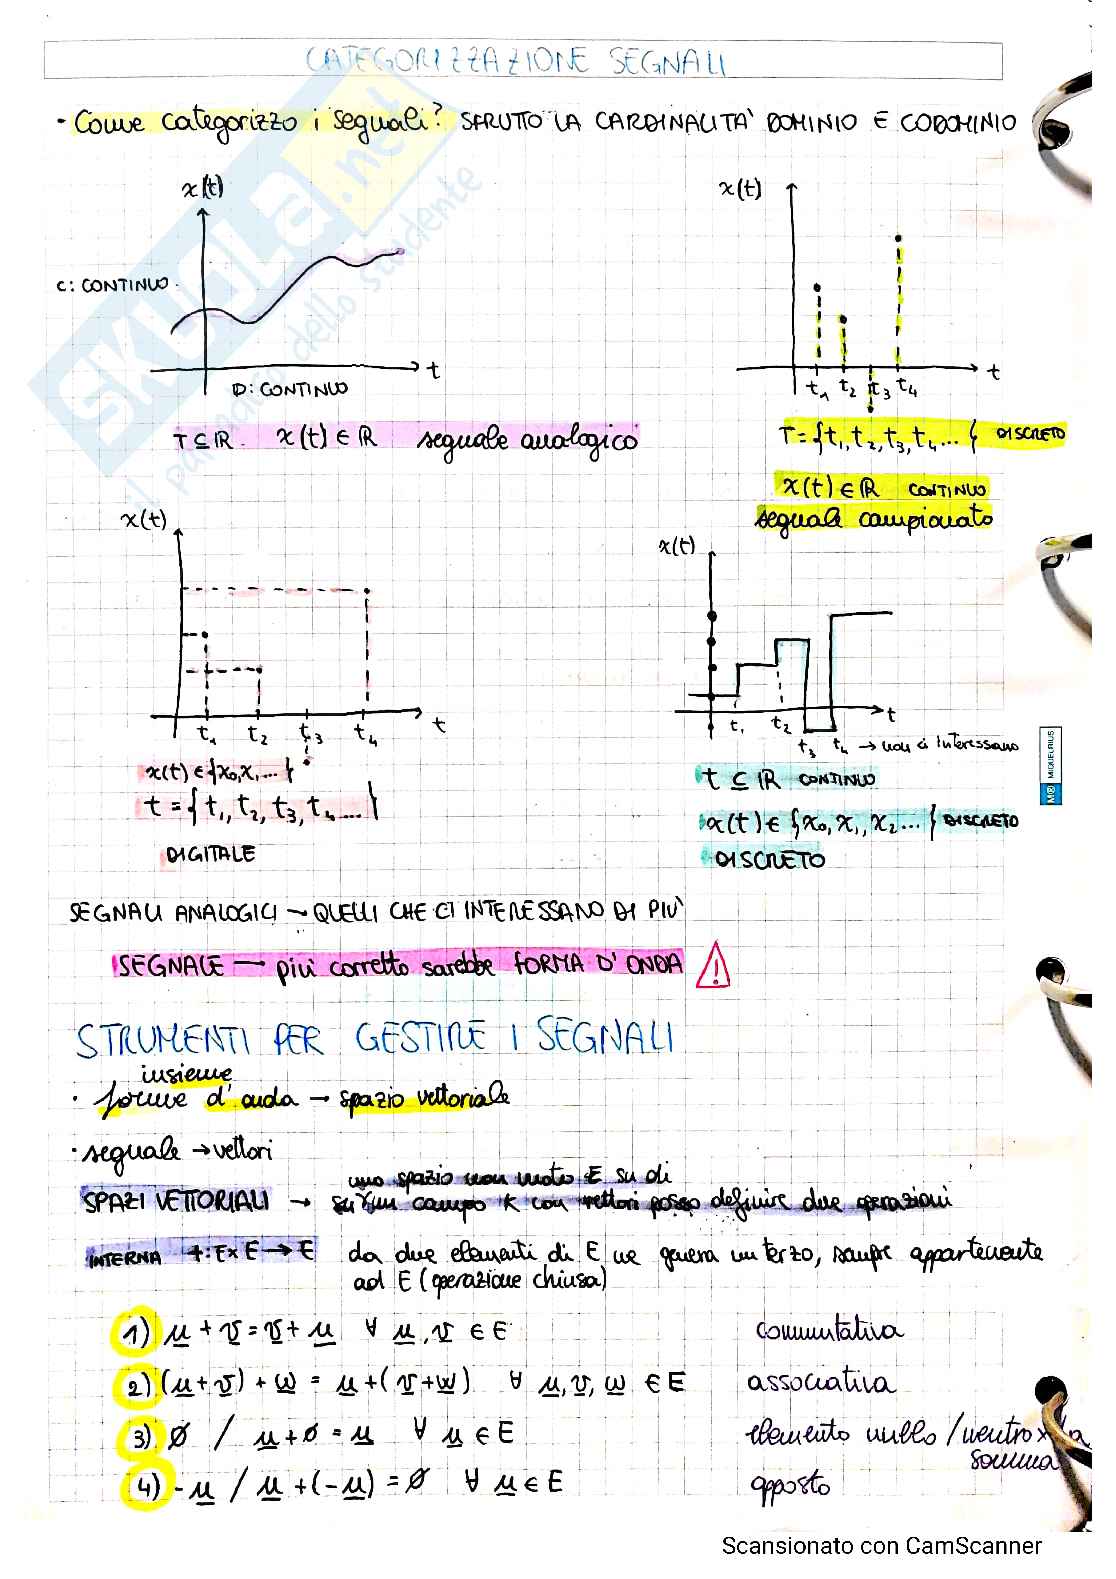 CATEGORIZZAZIONE SEGNALI
· Come categorizzo i segnali? SFRUTTO LA CARDINALITA' DOMINIO E CODOMINIO
x(t)
C: CONTINUO
t
D: CONTINUO
T ⊆ ℝ x(t) ∈ ℝ segnale analogico
x(t)
t
t₁ t₂ t₃ t₄
T = {t₁, t₂, t₃, t₄ ... } DISCRETO
x(t) ∈ ℝ CONTINUO
segnale campionato
x(t)
t
t₁ t₂ t₃ t₄
x(t) ∈ {x₀, x₁ ... }
t = {t₁, t₂, t₃, t₄ ... }
DIGITALE
x(t)
t
t₁ t₂
t₃ t₄ → non ci interessano
t ⊆ ℝ CONTINUO
x(t) ∈ {x₀, x₁, x₂ ... } DISCRETO
DISCRETO
SEGNALI ANALOGICI → QUELLI CHE CI INTERESSANO DI PIU'
SEGNALE → più corretto sarebbe FORMA D'ONDA
STRUMENTI PER GESTIRE I SEGNALI
insieme
· forme d'onda → spazio vettoriale
· segnale → vettori
uno spazio non vuoto E su di
SPAZI VETTORIALI → un campo K con vettori posso definire due operazioni
INTERNA +: E x E → E da due elementi di E ne genera un terzo, sempre appartenente
ad E (operazione chiusa)
1) u + v = v + u ∀ u, v ∈ E commutativa
2) (u + v) + w = u + (v + w) ∀ u, v, w ∈ E associativa
3) ∅ / u + ∅ = u ∀ u ∈ E elemento nullo / neutro x la
somma
4) -u / u + (-u) = ∅ ∀ u ∈ E opposto
SKUOLA.net
il paradiso dello studente
MIQUELRIUS
Scansionato con CamScanner